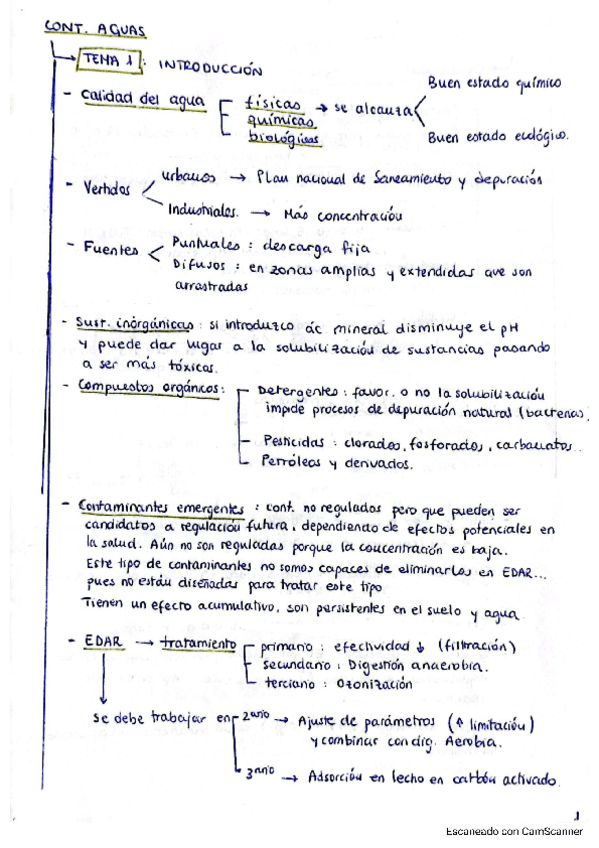 CONT. AGUAS
TEMA 1: INTRODUCCIÓN
- Calidad del agua físicas → se alcanza Buen estado químico
químicas
biológicas Buen estado ecológico.
- Vertidos urbanos → Plan nacional de Saneamiento y depuración
Industriales. → Más concentración
- Fuentes Puntuales : descarga fija
Difusos : en zonas amplias y extendidas que son
arrastradas
- Sust. inorgánicas : si introduzco ác mineral disminuye el pH
y puede dar lugar a la solubilización de sustancias pasando
a ser más tóxicas.
- Compuestos orgánicos: Detergentes : favor. o no la solubilización
impide procesos de depuración natural (bacterias)
Pesticidas : clorados, fosforados, carbamatos...
Petróleos y derivados.
- Contaminantes emergentes : cont. no regulados pero que pueden ser
candidatos a regulación futura, dependiendo de efectos potenciales en
la salud. Aún no son reguladas porque la concentración es baja.
Este tipo de contaminantes no somos capaces de eliminarlos en EDAR...
pues no están diseñadas para tratar este tipo
Tienen un efecto acumulativo, son persistentes en el suelo y agua
- EDAR → tratamiento primario : efectividad ↓ (filtración)
secundario : Digestión anaerobia.
terciario : Ozonización
se debe trabajar en 2ario → Ajuste de parámetros (↑ limitación)
y combinar con dig. Aerobia.
3ario → Adsorción en lecho en carbón activado.
1
Escaneado con CamScanner